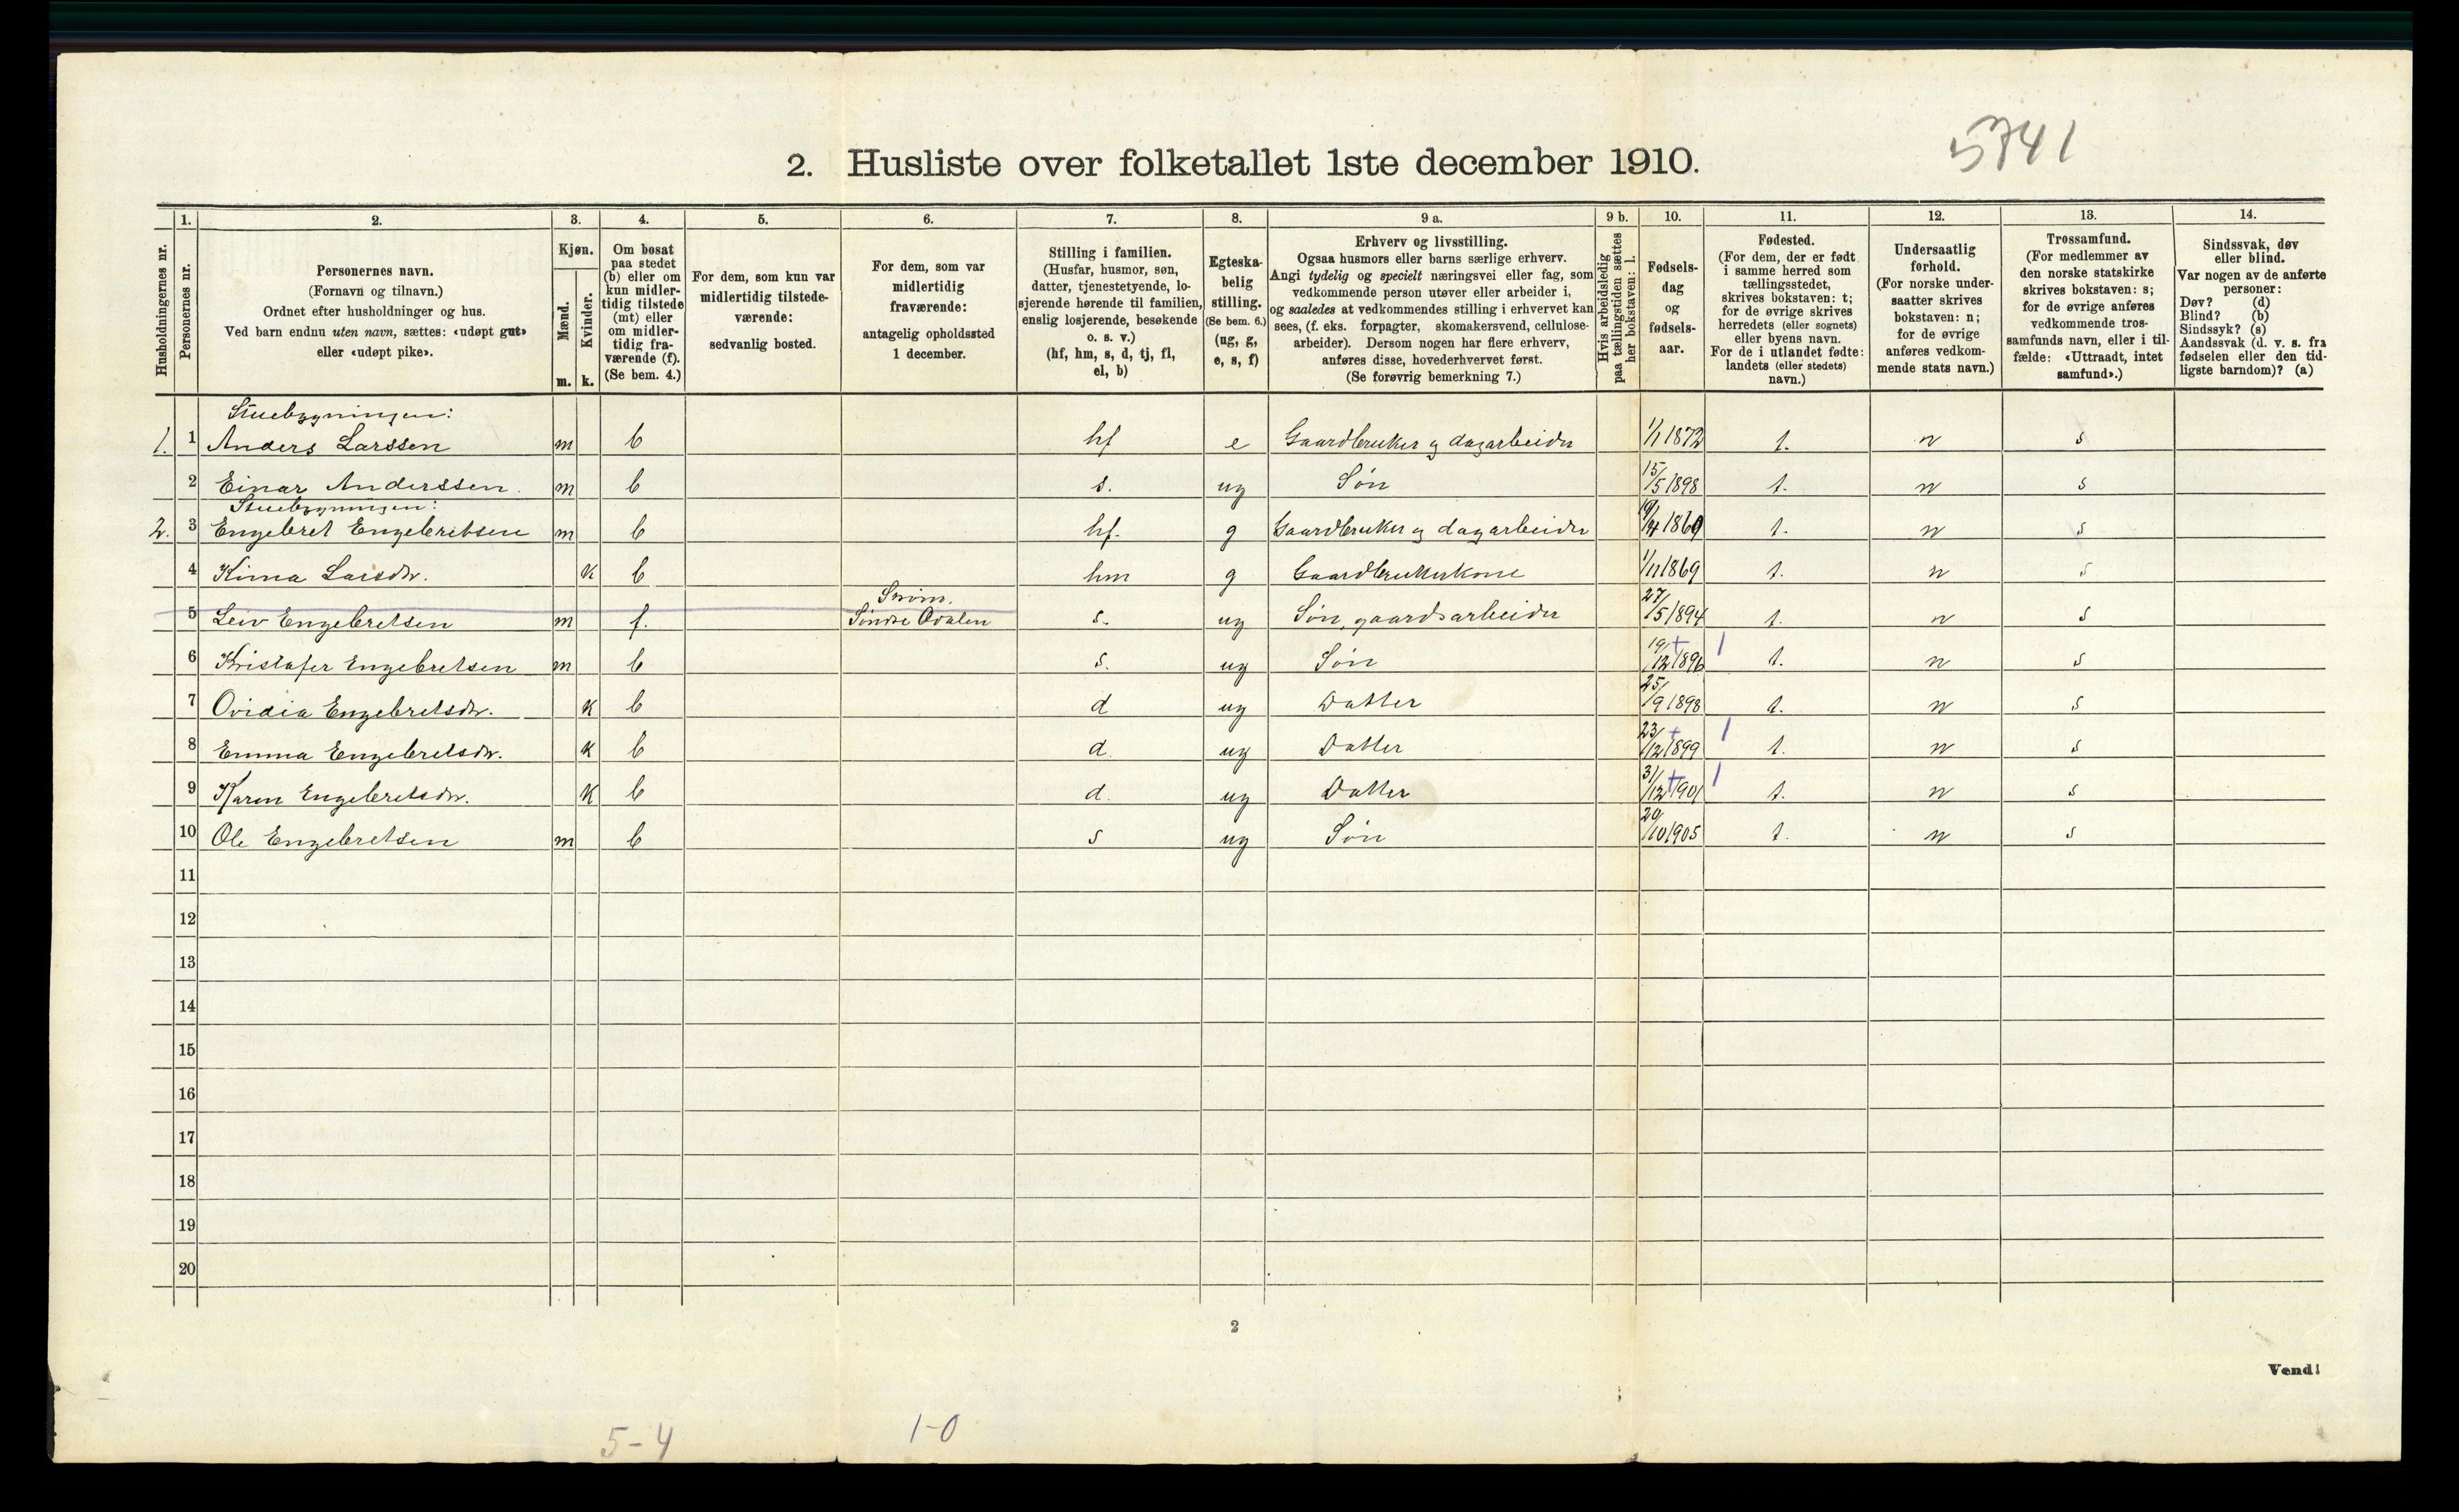 5741
2. Husliste over folketallet 1ste december 1910.
Husholdningernes nr.
1.
Personernes nr.
2.
Personernes navn.
(Fornavn og tilnavn.)
Ordnet efter husholdninger og hus.
Ved barn endnu uten navn, sættes: «udøpt gut»
eller «udøpt pike».
3.
Kjøn.
Mænd.
m.
Kvinder.
k.
4.
Om bosat
paa stedet
(b) eller om
kun midler-
tidig tilstede
(mt) eller
om midler-
tidig fra-
værende (f).
(Se bem. 4.)
5.
For dem, som kun var
midlertidig tilstede-
værende:
sedvanlig bosted.
6.
For dem, som var
midlertidig
fraværende:
antagelig opholdssted
1 december.
7.
Stilling i familien.
(Husfar, husmor, søn,
datter, tjenestetyende, lo-
sjerende hørende til familien,
enslig losjerende, besøkende
o. s. v.)
(hf, hm, s, d, tj, fl,
el, b)
8.
Egteska-
belig
stilling.
(Se bem. 6.)
(ug, g,
e, s, f)
9 a.
Erhverv og livsstilling.
Ogsaa husmors eller barns særlige erhverv.
Angi tydelig og specielt næringsvei eller fag, som
vedkommende person utøver eller arbeider i,
og saaledes at vedkommendes stilling i erhvervet kan
sees, (f. eks. forpagter, skomakersvend, cellulose-
arbeider). Dersom nogen har flere erhverv,
anføres disse, hovederhvervet først.
(Se forøvrig bemerkning 7.)
9 b.
Hvis arbeidsledig
paa tællingstiden sættes
her bokstaven: l.
10.
Fødsels-
dag
og
fødsels-
aar.
11.
Fødested.
(For dem, der er født
i samme herred som
tællingsstedet,
skrives bokstaven: t;
for de øvrige skrives
herredets (eller sognets)
eller byens navn.
For de i utlandet fødte:
landets (eller stedets)
navn.)
12.
Undersaatlig
forhold.
(For norske under-
saatter skrives
bokstaven: n;
for de øvrige
anføres vedkom-
mende stats navn.)
13.
Trossamfund.
(For medlemmer av
den norske statskirke
skrives bokstaven: s;
for de øvrige anføres
vedkommende tros-
samfunds navn, eller i til-
fælde: «Uttraadt, intet
samfund».)
14.
Sindssvak, døv
eller blind.
Var nogen av de anførte
personer:
Døv? (d)
Blind? (b)
Sindssyk? (s)
Aandssvak (d. v. s. fra
fødselen eller den tid-
ligste barndom)? (a)
Stuebygningen:
1. 1 Anders Larssen m b hf e Gaardbruker og dagarbeider 1/1 1872 t. n s
2 Einar Anderssen. m b s. ug Søn 15/5 1898 t. n s
Stuebygningen:
2. 3 Engebret Engebretsen m b hf. g Gaardbruker og dagarbeider 1869 t. n s
4 Larsdtr. k b hm g Gaardbrukerkone 1869 t. n s
Strøm.
5 Leiv Engebretsen m f. Søndre Odalen s. ug Søn, gaardsarbeider 27/5 1894 t. n s
6 Kristofer Engebretsen m b s. ug Søn 19/12 1896 t. n s
7 Ovidia Engebretsdtr. k b d ug Datter 25/9 1898 t. n s
8 Emma Engebretsdtr. k b d. ug Datter 23/12 1899 t. n s
9 Karen Engebretsdtr. k b d. ug Datter 31/12 1901 t. n s
10 Ole Engebretsen m b s ug Søn 20/10 1905 t. n s
11
12
13
14
15
16
17
18
19
20
2
Vend!
5-4
1-0